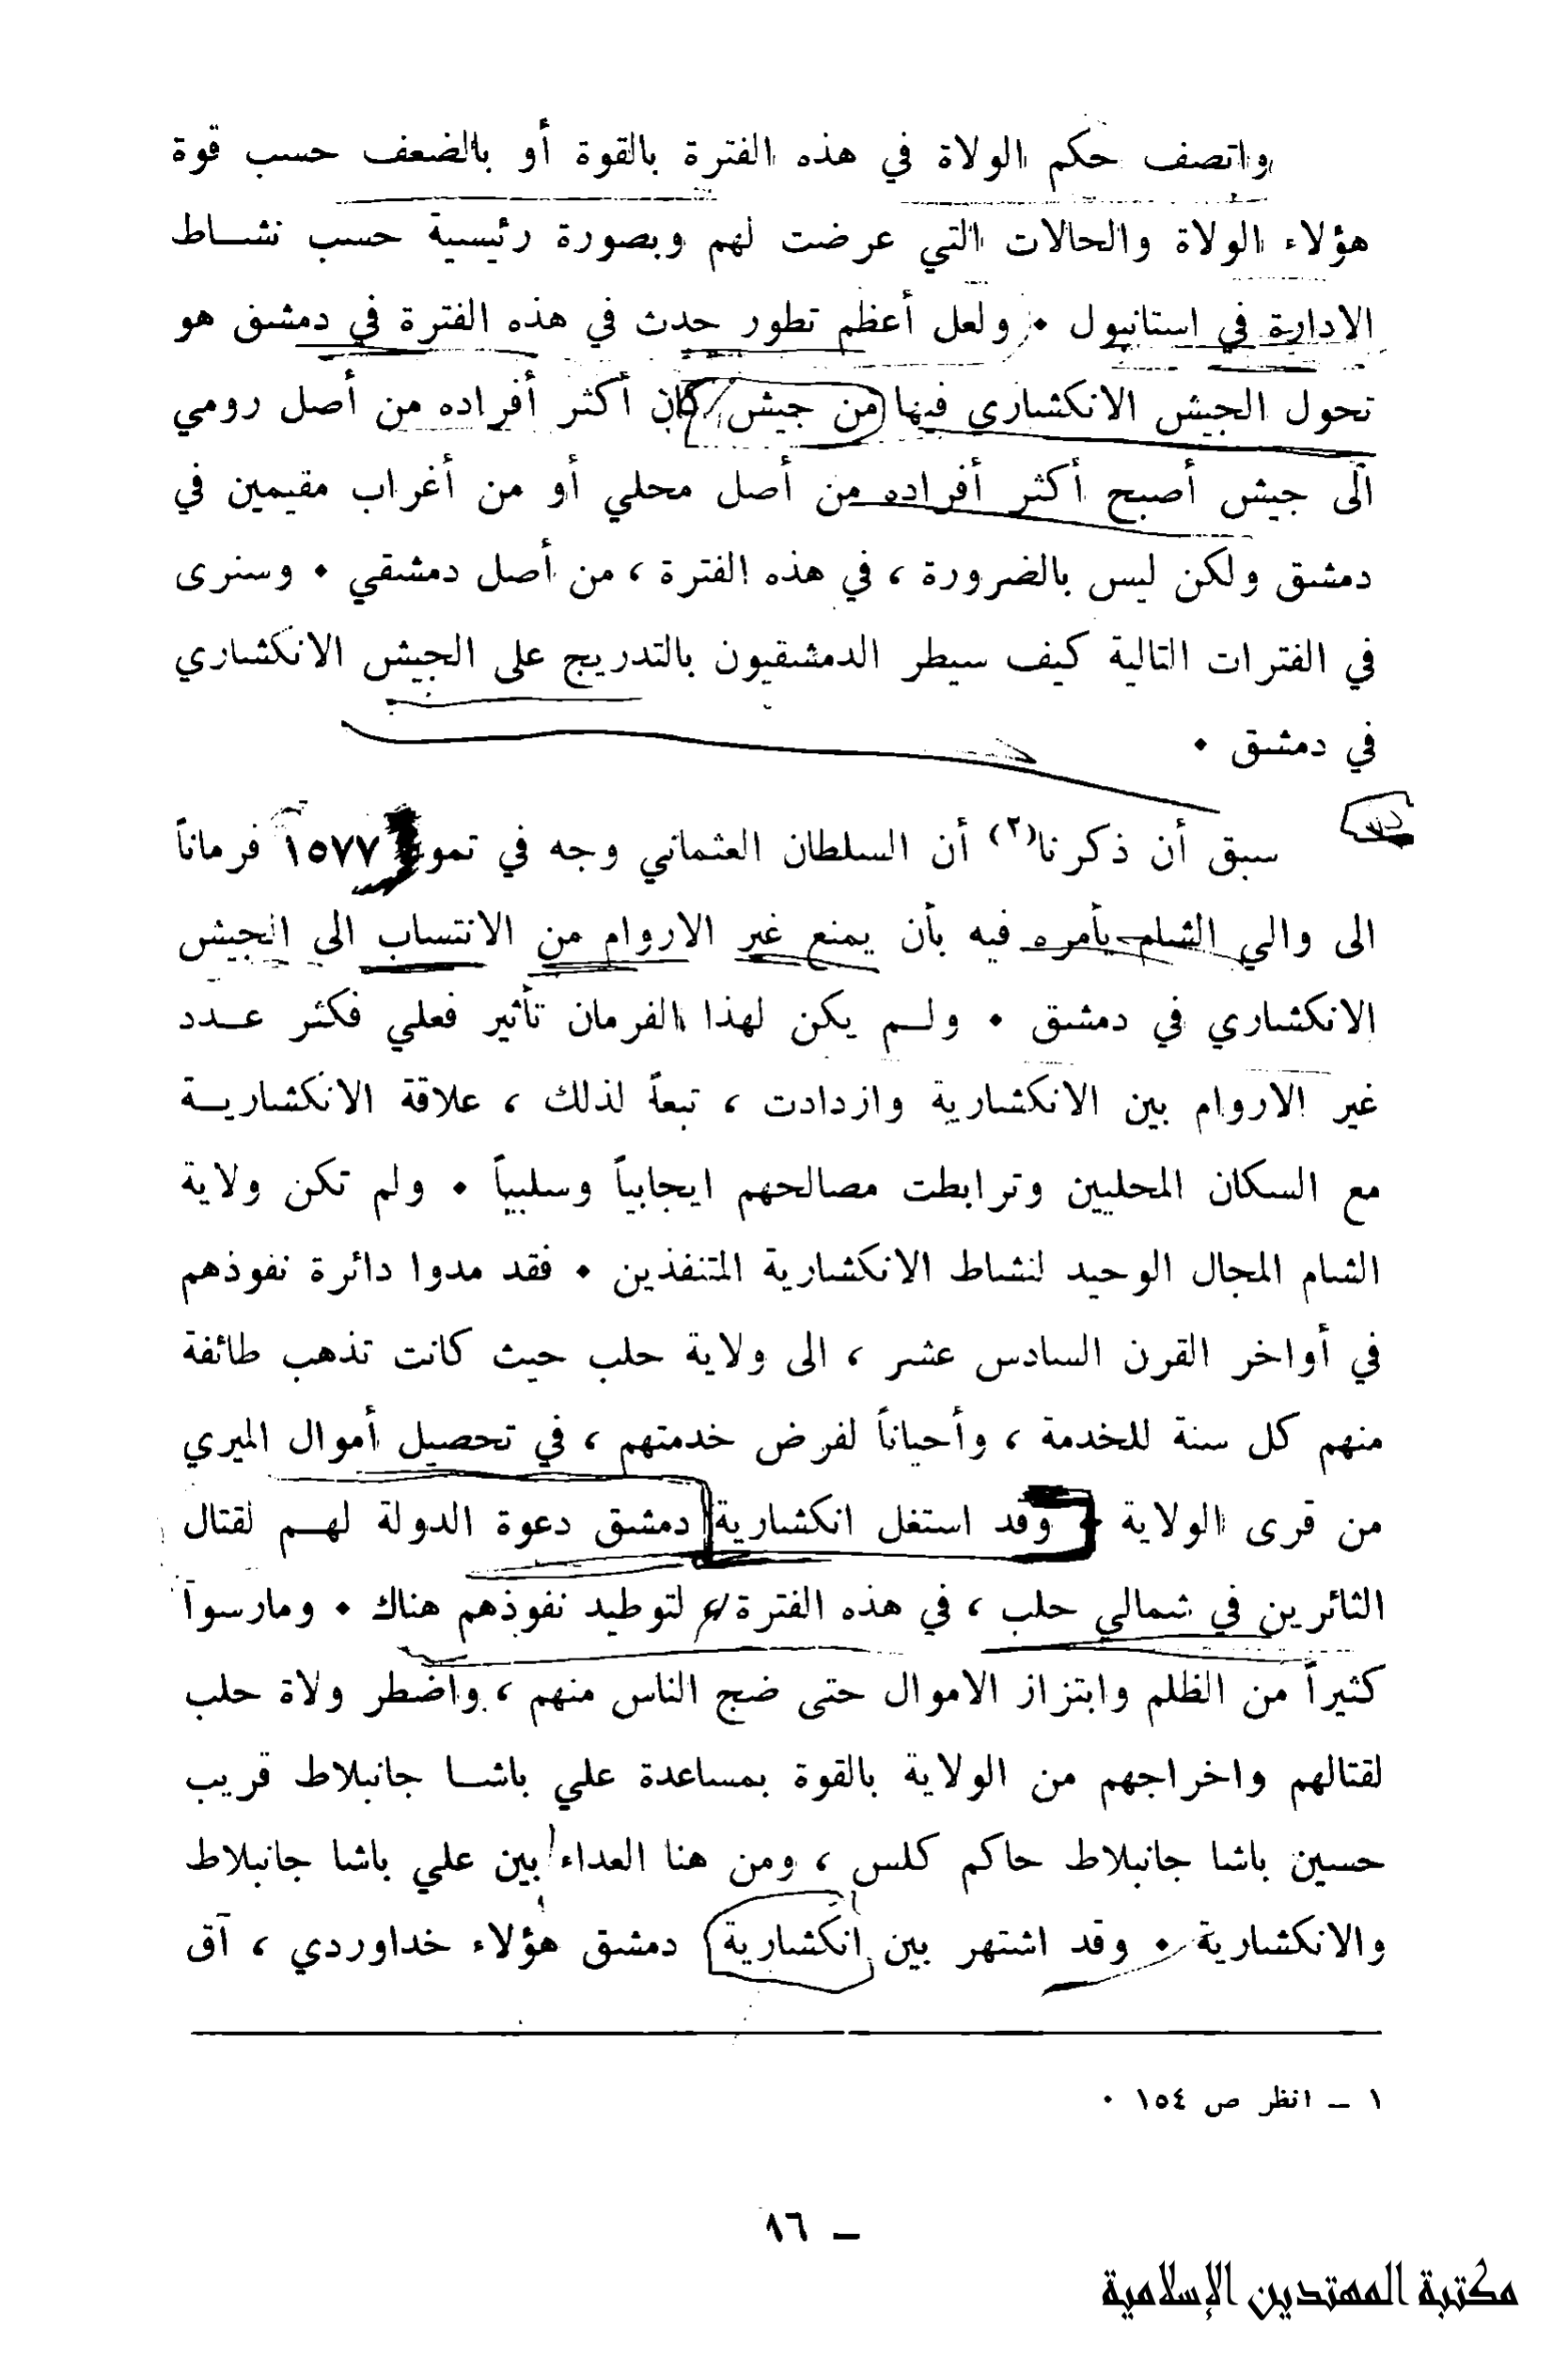 واتصف حكم الولاة في هذه الفترة بالقوة أو بالضعف حسب قوة
هؤلاء الولاة والحالات التي عرضت لهم وبصورة رئيسية حسب نشـــاط
الادارة في استانبول ٠ ولعل أعظم تطور حدث في هذه الفترة في دمشق هو
تحول الجيش الانكشاري فيها من جيش كان أكثر أفراده من أصل رومي
الى جيش أصبح أكثر أفراده من أصل محلي أو من أغراب مقيمين في
دمشق ولكن ليس بالضرورة ، في هذه الفترة ، من أصل دمشقي ٠ وسنرى
في الفترات التالية كيف سيطر الدمشقيون بالتدريج على الجيش الانكشاري
في دمشق ٠
سبق أن ذكرنا(٢) أن السلطان العثماني وجه في تموز ١٥٧٧ فرماناً
الى والي الشام يأمره فيه بأن يمنع غير الاروام من الانتساب الى الجيش
الانكشاري في دمشق ٠ ولـــم يكن لهذا الفرمان تأثير فعلي فكثر عـــدد
غير الاروام بين الانكشارية وازدادت ، تبعاً لذلك ، علاقة الانكشاريـــة
مع السكان المحليين وترابطت مصالحهم ايجابياً وسلبياً ٠ ولم تكن ولاية
الشام المجال الوحيد لنشاط الانكشارية المتنفذين ٠ فقد مدوا دائرة نفوذهم
في أواخر القرن السادس عشر ، الى ولاية حلب حيث كانت تذهب طائفة
منهم كل سنة للخدمة ، وأحياناً لفرض خدمتهم ، في تحصيل أموال الميري
من قرى الولاية ٠ وقد استغل انكشارية دمشق دعوة الدولة لهـــم لقتال
الثائرين في شمالي حلب ، في هذه الفترة ، لتوطيد نفوذهم هناك ٠ ومارسوا
كثيراً من الظلم وابتزاز الاموال حتى ضج الناس منهم ، واضطر ولاة حلب
لقتالهم واخراجهم من الولاية بالقوة بمساعدة علي باشـــا جانبلاط قريب
حسين باشا جانبلاط حاكم كلس ، ومن هنا العداء بين علي باشا جانبلاط
والانكشارية ٠ وقد اشتهر بين انكشارية دمشق هؤلاء خداوردي ، آق
١ ــ انظر ص ١٥٤ ٠
١٦ ــ
مكتبة المهتدين الإسلامية